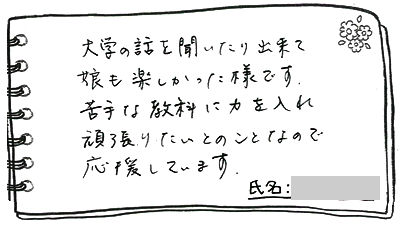 大学の話を聞いたり出来て
娘も楽しかった様です.
苦手な教科に力を入れ
頑張りたいとのことなので
応援しています.
氏名: